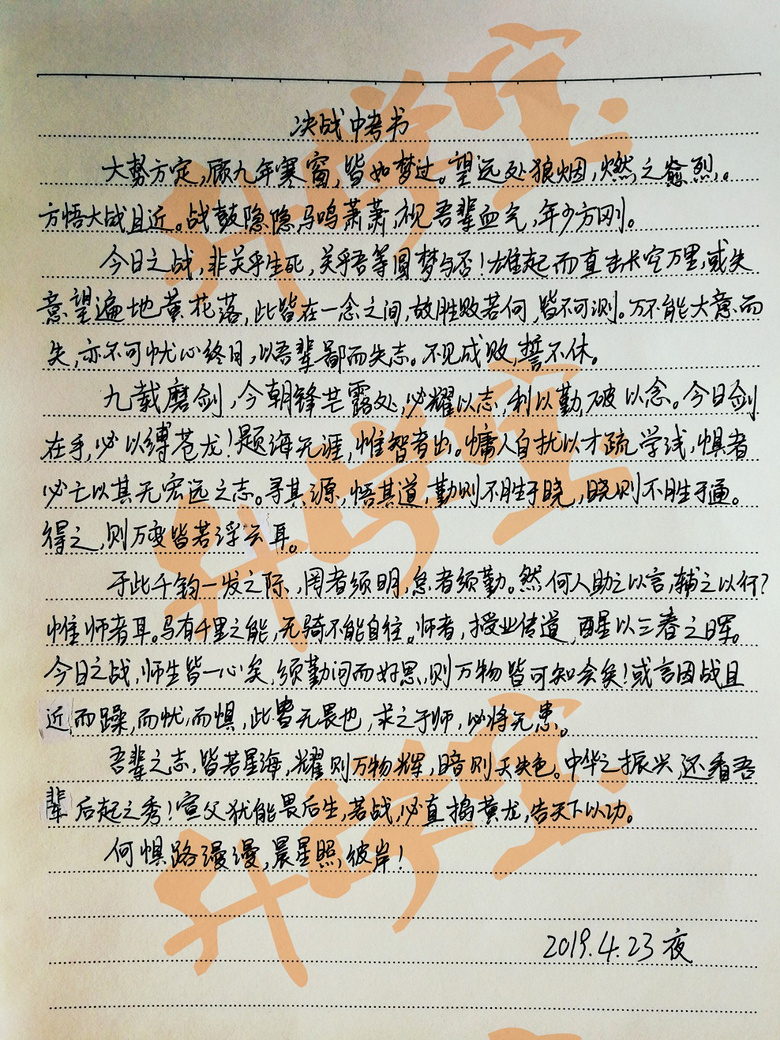 决战中考书
大势方定,顾九年寒窗,皆如梦过。望远处狼烟,燃之愈烈。
方悟大战且近。战鼓隐隐,马鸣萧萧,视吾辈血气,年少方刚。
今日之战,非关乎生死,关乎吾等圆梦与否!雄起而直击长空万里,或失
意望遍地黄花落,此皆在一念之间,故胜败若何,皆不可测。万不能大意而
失,亦不可忧心终日,以吾辈鄙而失志。不见成败,誓不休。
九载磨剑,今朝锋芒露处,必耀以志,利以勤,破以念。今日剑
在手,必以缚苍龙!题海无涯,惟智者出。慵人自扰以才疏学浅,惧者
必亡以其无宏远之志。寻其源,悟其道,勤则不胜于晓,晓则不胜于通。
得之,则万变皆若浮云耳。
于此千钧一发之际,罔者须明,怠者须勤。然何人助之以言,辅之以何?
惟师者耳。马有千里之能,无骑不能自往。师者,授业传道,醒以三春之晖。
今日之战,师生皆一心矣,须勤问而好思,则万物皆可知会矣!或言因战且
近而躁,而忧,而惧,此皆无畏也,求之于师,必将无患。
吾辈之志,皆若星海,耀则万物辉,暗则天失色。中华之振兴,还看吾
辈后起之秀!宣父犹能畏后生,若战,必直捣黄龙,告天下以功。
何惧路漫漫,晨星照彼岸!
2019.4.23 夜
升学宝
升学宝
升学宝